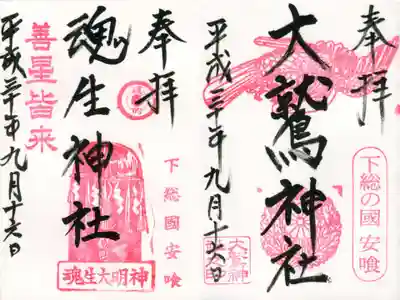 奉拝
大鷲神社
平成三十年九月十六日
下総の國 安喰
大鷲神社印
奉拝
魂生神社
平成三十年九月十六日
善星皆来
下総國安喰
魂生大明神